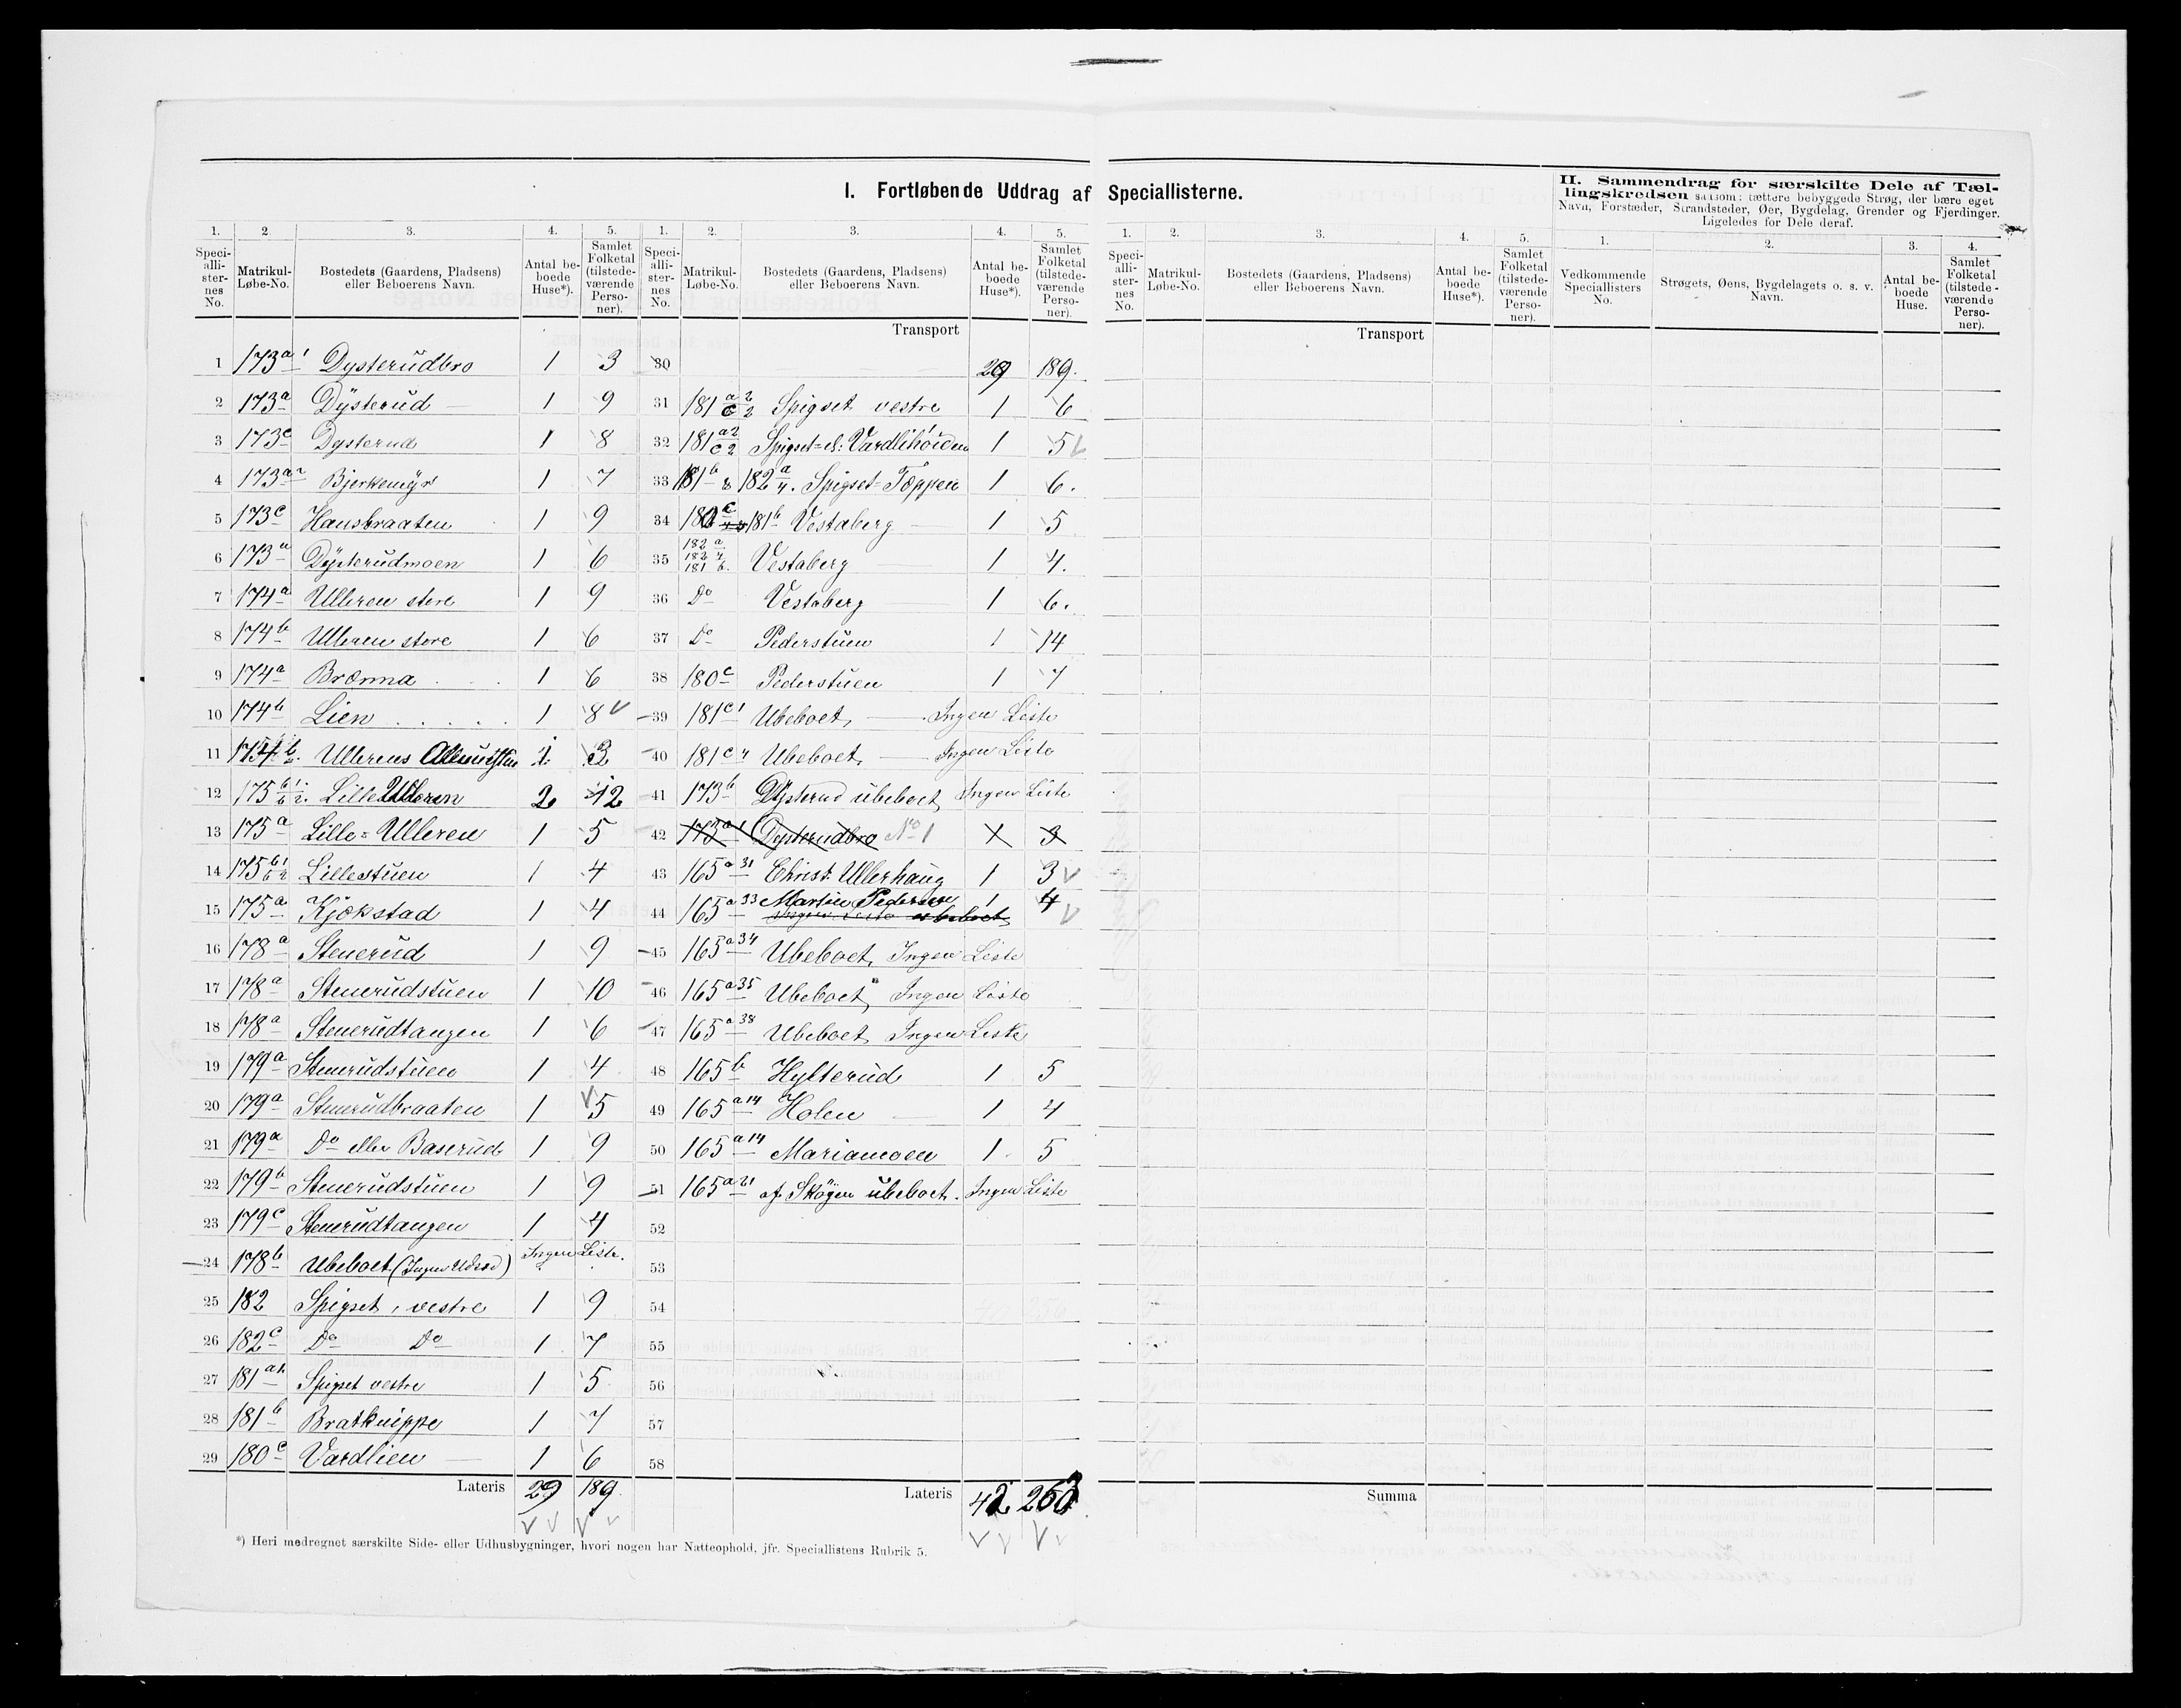 I. Fortløbende Uddrag af Speciallisterne.
II. Sammendrag for særskilte Dele af Tæl-
lingskredsen saasom: tættere bebyggede Strøg, der bære eget
Navn, Forstæder, Strandsteder, Øer, Bygdelag, Grender og Fjerdinger.
Ligeledes for Dele deraf.
1. 2. 3. 4. 5.
Speciallisternes No. Matrikul-Løbe-No. Bostedets (Gaardens, Pladsens) eller Beboerens Navn. Antal beboede Huse*). Samlet Folketal (tilstedeværende Personer).
1 173a1 Dysterudbro 1 3
2 173a Dysterud 1 9
3 173c Dysterud 1 8
4 173a2 Bjerkemyr 1 7
5 173c Hansbraaten 1 9
6 173a Dysterudmoen 1 6
7 174a Ulleren store 1 9
8 174b Ulleren store 1 6
9 174a Brænna 1 6
10 174b Lien 1 8
11 Ullerens 1 3
12 175 b1/b2. Lille Ulleren 2 12
13 175a Lille=Ulleren 1 5
14 175 b1/b2 Lillestuen 1 4
15 175a Kjøkstad 1 4
16 178a Stenerud 1 9
17 178a Stenerudstuen 1 10
18 178a Stenerudtangen 1 6
19 179a Stenerudstuen 1 4
20 179a Stenerudbraaten 1 5
21 179a Do eller Baserud 1 9
22 179b Stenerudstuen 1 9
23 179c Stenerudtangen 1 4
24 178b Ubeboet (Ingen Udsæd) Ingen Liste.
25 182 Spigset, vestre 1 9
26 182c Do Do 1 7
27 181 Spigset vestre 1 5
28 181b Bratknippe 1 7
29 180c Vardlien 1 6
Lateris 29 189.
1. 2. 3. 4. 5.
Speciallisternes No. Matrikul-Løbe-No. Bostedets (Gaardens, Pladsens) eller Beboerens Navn. Antal beboede Huse*). Samlet Folketal (tilstedeværende Personer).
Transport
30 29 189.
31 181 a2/c2 Spigset vestre 1 6
32 181 a2/c2 Spigset=el: Vardlihöiden 1 5
33 181b & 182 a/4. Spigset=Toppen 1 6.
34 181b Vestaberg 1 5
35 182 a 182 4 181 b. Vestaberg 1 4.
36 Do Vestaberg 1 6.
37 Do Pederstuen 1 14
38 180c Pederstuen 1 7
39 181c1 Ubeboet, Ingen Liste
40 181c4 Ubeboet, Ingen Liste
41 173b Dysterud ubeboet Ingen Liste
42 173a1 Dysterudbro No 1 1 3
43 165a31 Christ. Ullerhaug 1 3
44 165a33 Martin Pedersen 1 4
Ingen Liste ubeboet
45 165a34 Ubeboet, Ingen Liste
46 165a35 Ubeboet, Ingen Liste
47 165a38 Ubeboet, Ingen Liste
48 165b Hylterud 1 5
49 165a14 Holen 1 4
50 165a14 Mariamoen 1 5
51 165a21 af Skögen ubeboet. Ingen Liste
52
53
54
55
56
57
58
Lateris 42 263
1. 2. 3. 4. 5.
Speciallisternes No. Matrikul-Løbe-No. Bostedets (Gaardens, Pladsens) eller Beboerens Navn. Antal beboede Huse*). Samlet Folketal (tilstedeværende Personer).
Transport
Summa
1. 2. 3. 4.
Vedkommende Speciallisters No. Strøgets, Øens, Bygdelagets o. s. v. Navn. Antal beboede Huse. Samlet Folketal (tilstedeværende Personer).
*) Heri medregnet særskilte Side- eller Udhusbygninger, hvori nogen har Natteophold, jfr. Speciallistens Rubrik 5.